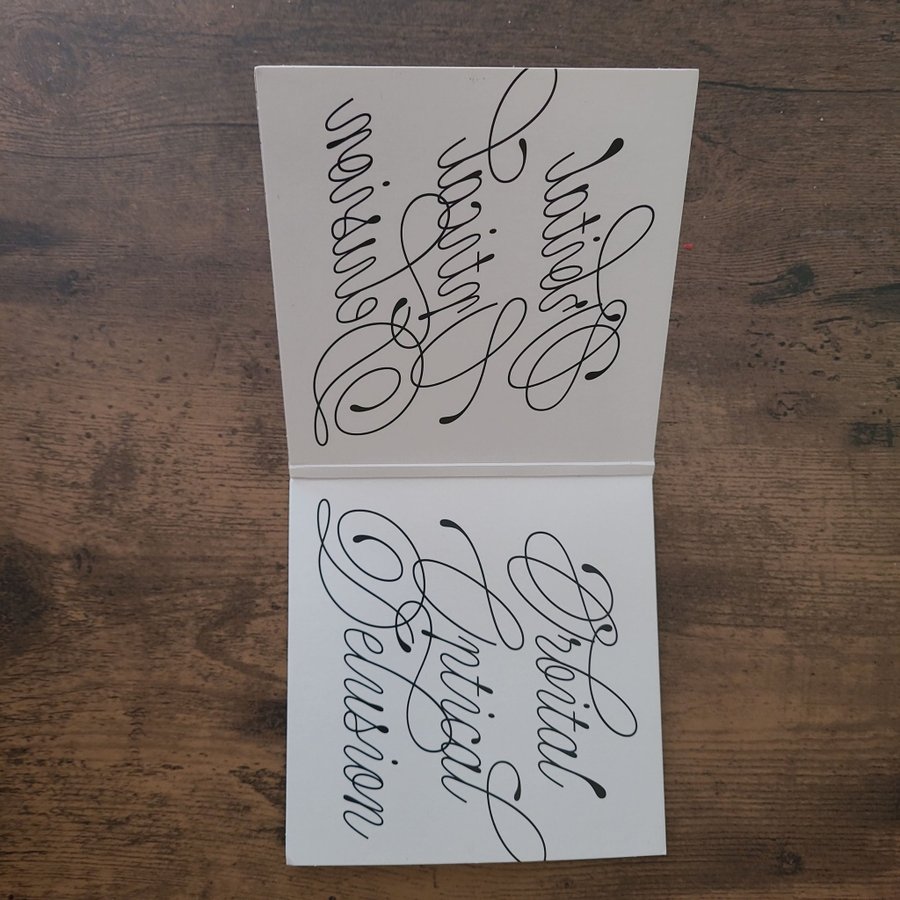 Orbital
Optical
Delusion
Orbital
Optical
Delusion